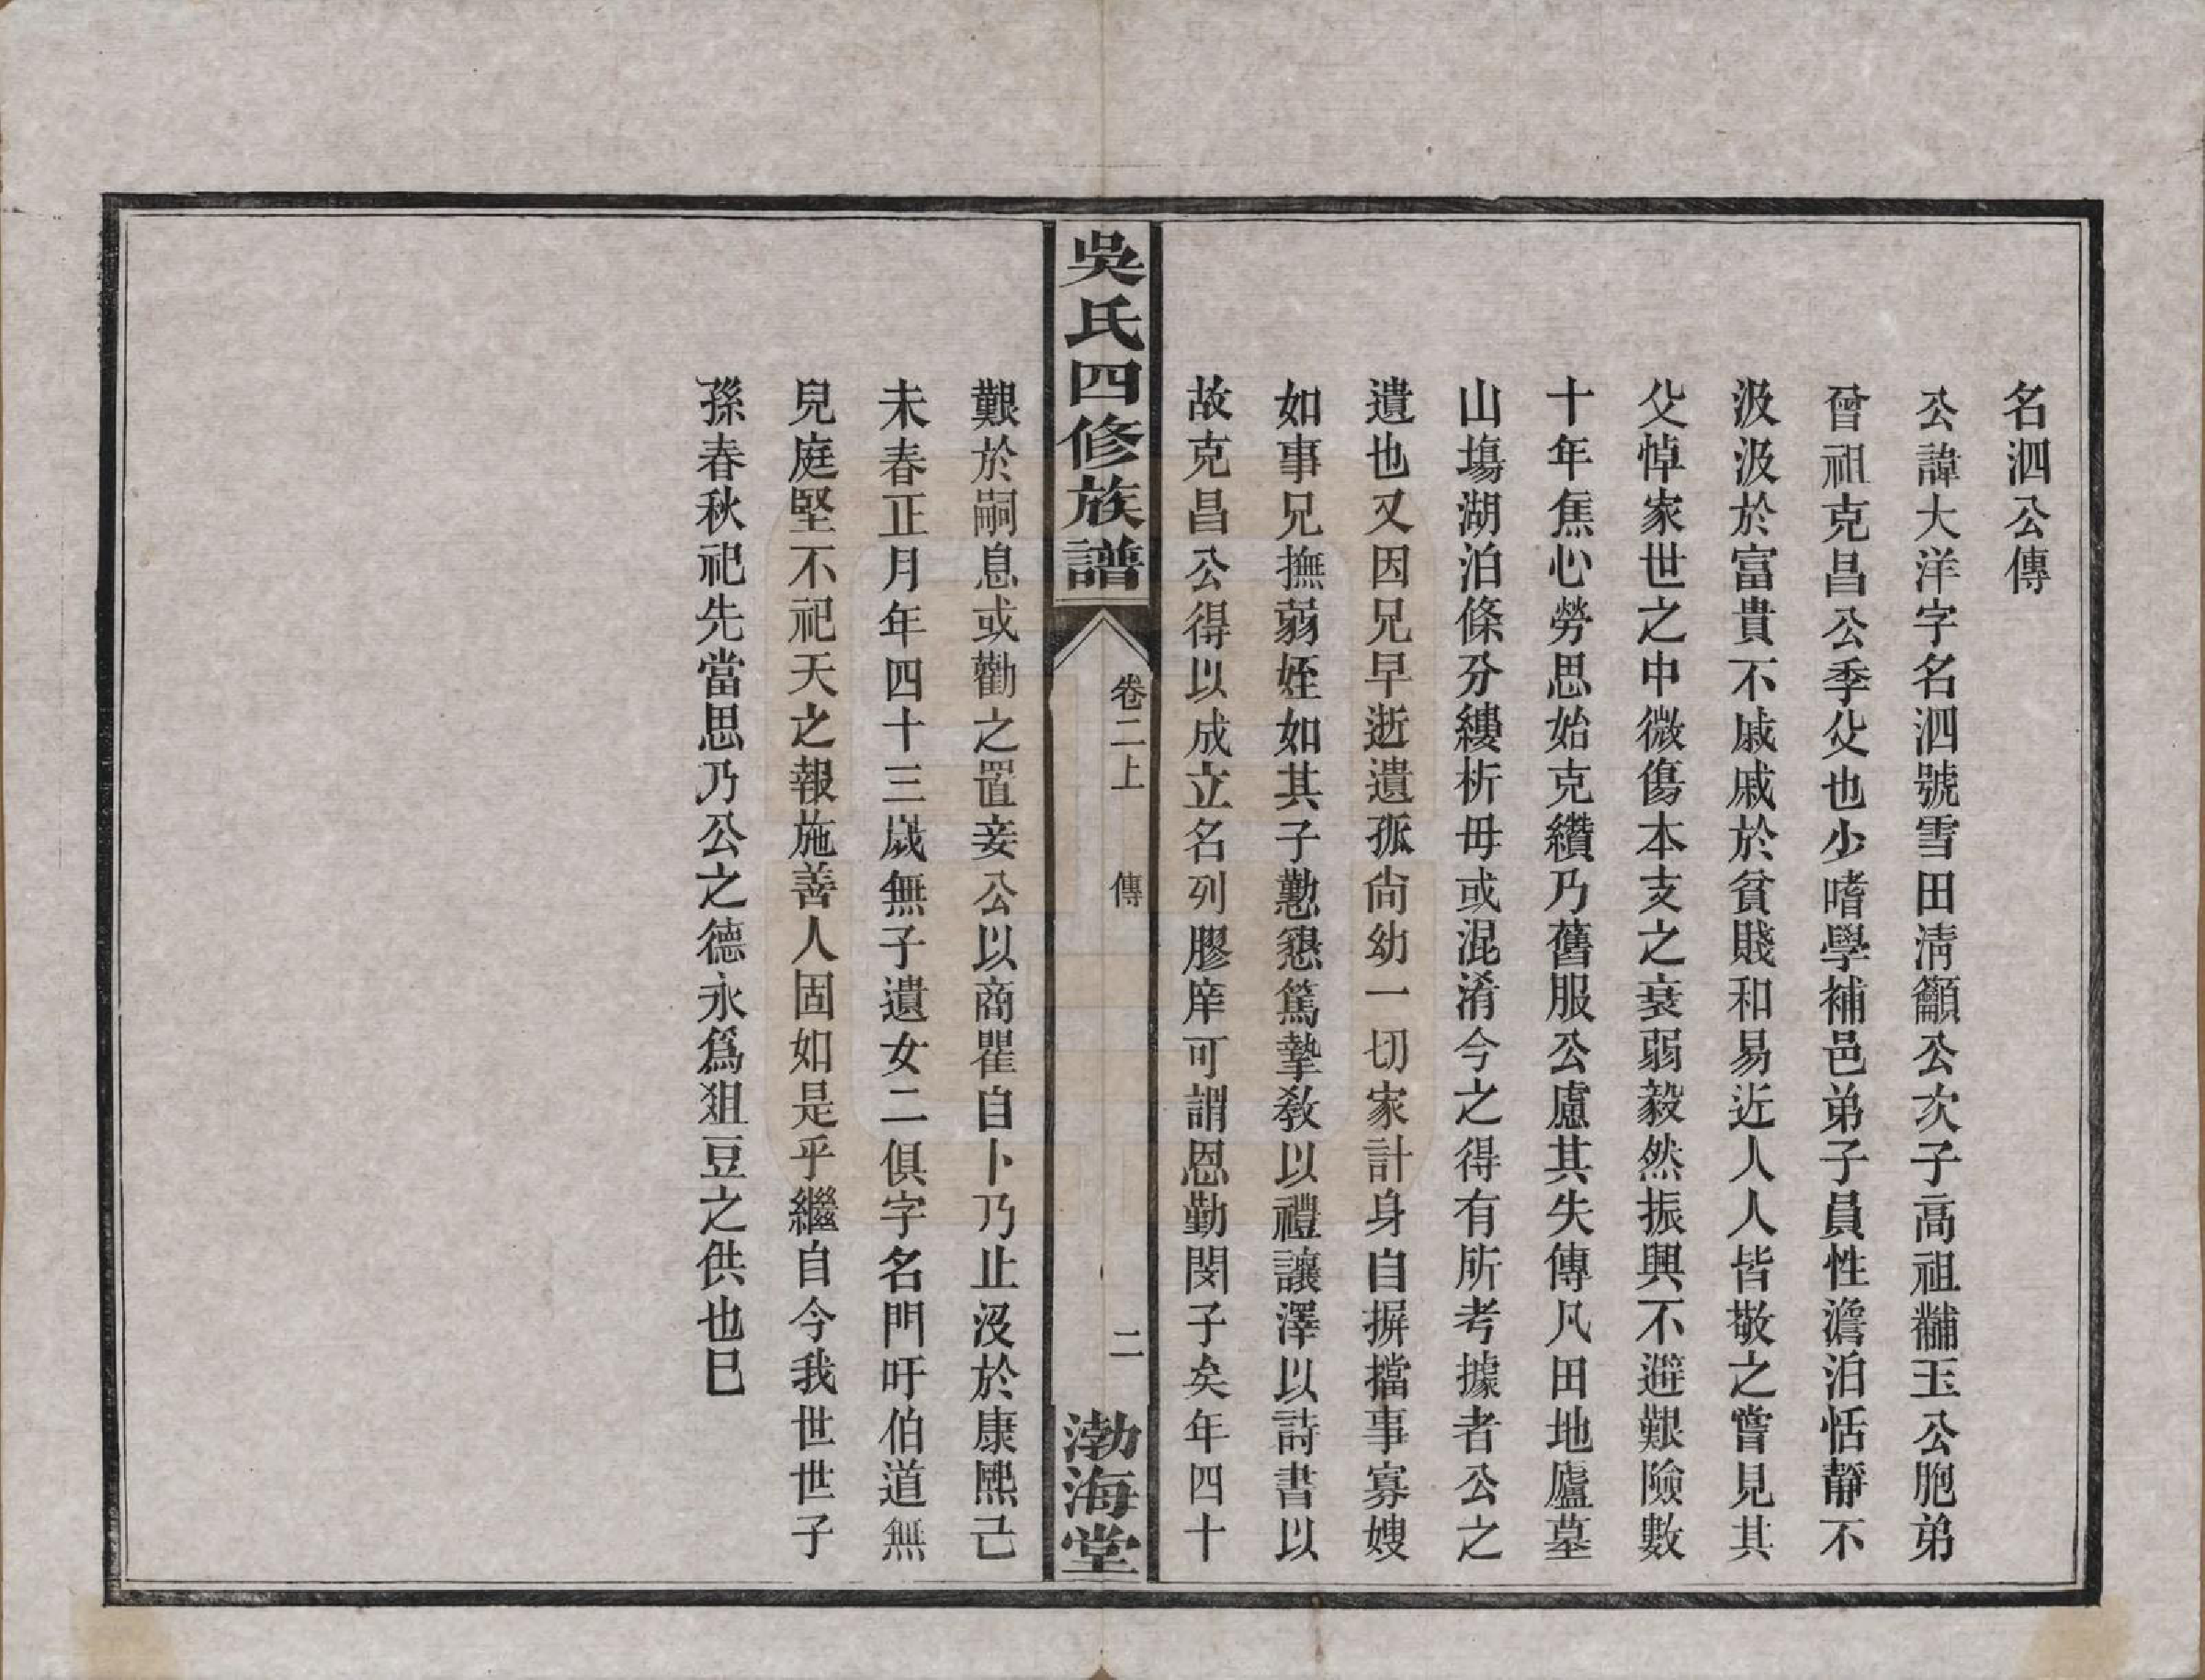 名泗公傳
公諱大洋字名泗號雪田淸籲公次子高祖黼玉公胞弟
曾祖克昌公季父也少嗜學補邑弟子員性澹泊恬靜不
汲汲於富貴不戚戚於貧賤和易近人人皆敬之嘗見其
父悼家世之中微傷本支之衰弱毅然振興不避艱險數
十年焦心勞思始克纘乃舊服公慮其失傳凡田地廬墓
山塲湖泊條分縷析毋或混淆今之得有所考據者公之
遺也又因兄早逝遺孤尙幼一切家計身自摒擋事寡嫂
如事兄撫弱姪如其子懃懇篤摯敎以禮讓澤以詩書以
故克昌公得以成立名列膠庠可謂恩勤閔子矣年四十
吳氏四修族譜
卷二上 傳
二
渤海堂
艱於嗣息或勸之置妾公以商瞿自卜乃止沒於康熙己
未春正月年四十三歲無子遺女二俱字名門吁伯道無
兒庭堅不祀天之報施善人固如是乎繼自今我世世子
孫春秋祀先當思乃公之德永爲爼豆之供也巳